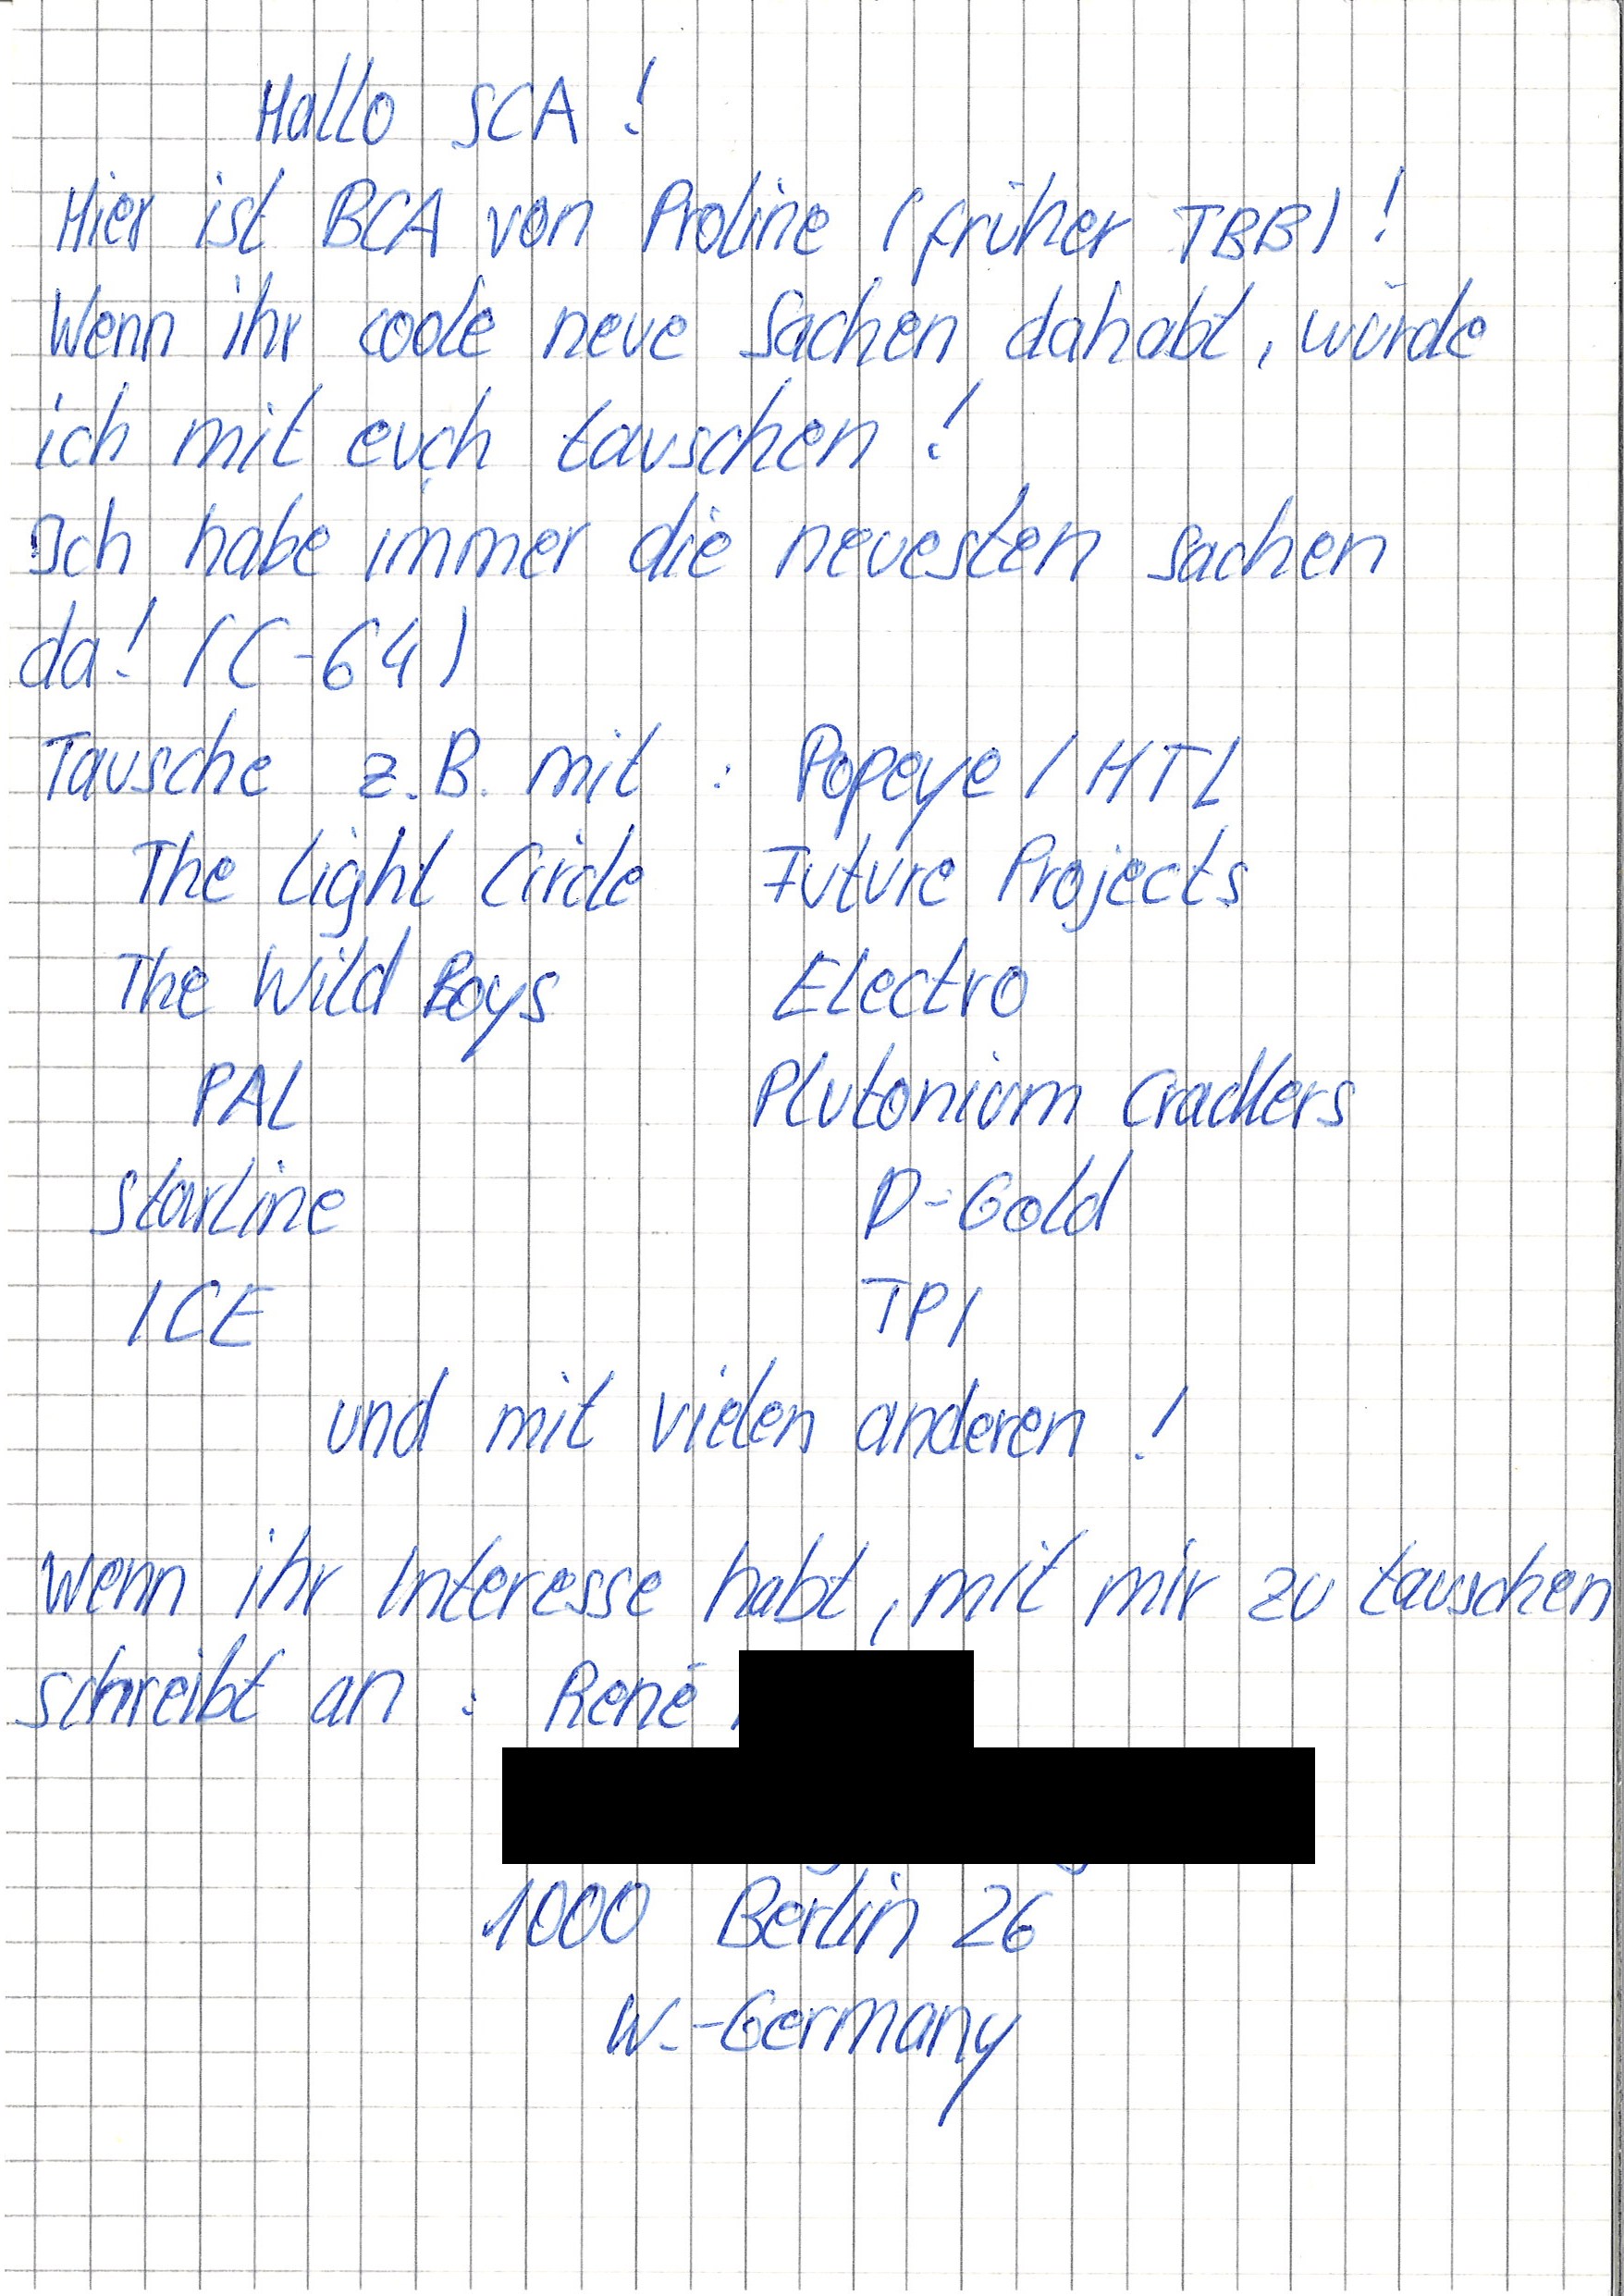 Hallo SCA !
Hier ist BCA von Proline (früher TBB) !
Wenn ihr coole neue Sachen dahabt, würde
ich mit euch tauschen !
Ich habe immer die neuesten Sachen
da! (C-64)
Tausche z.B. mit : Popeye / HTL
The Light Circle Future Projects
The Wild Boys Electro
PAL Plutonium Crackers
Starline D-Gold
ICE TPI
und mit vielen anderen !
Wenn ihr Interesse habt, mit mir zu tauschen
schreibt an : René
1000 Berlin 26
W.-Germany